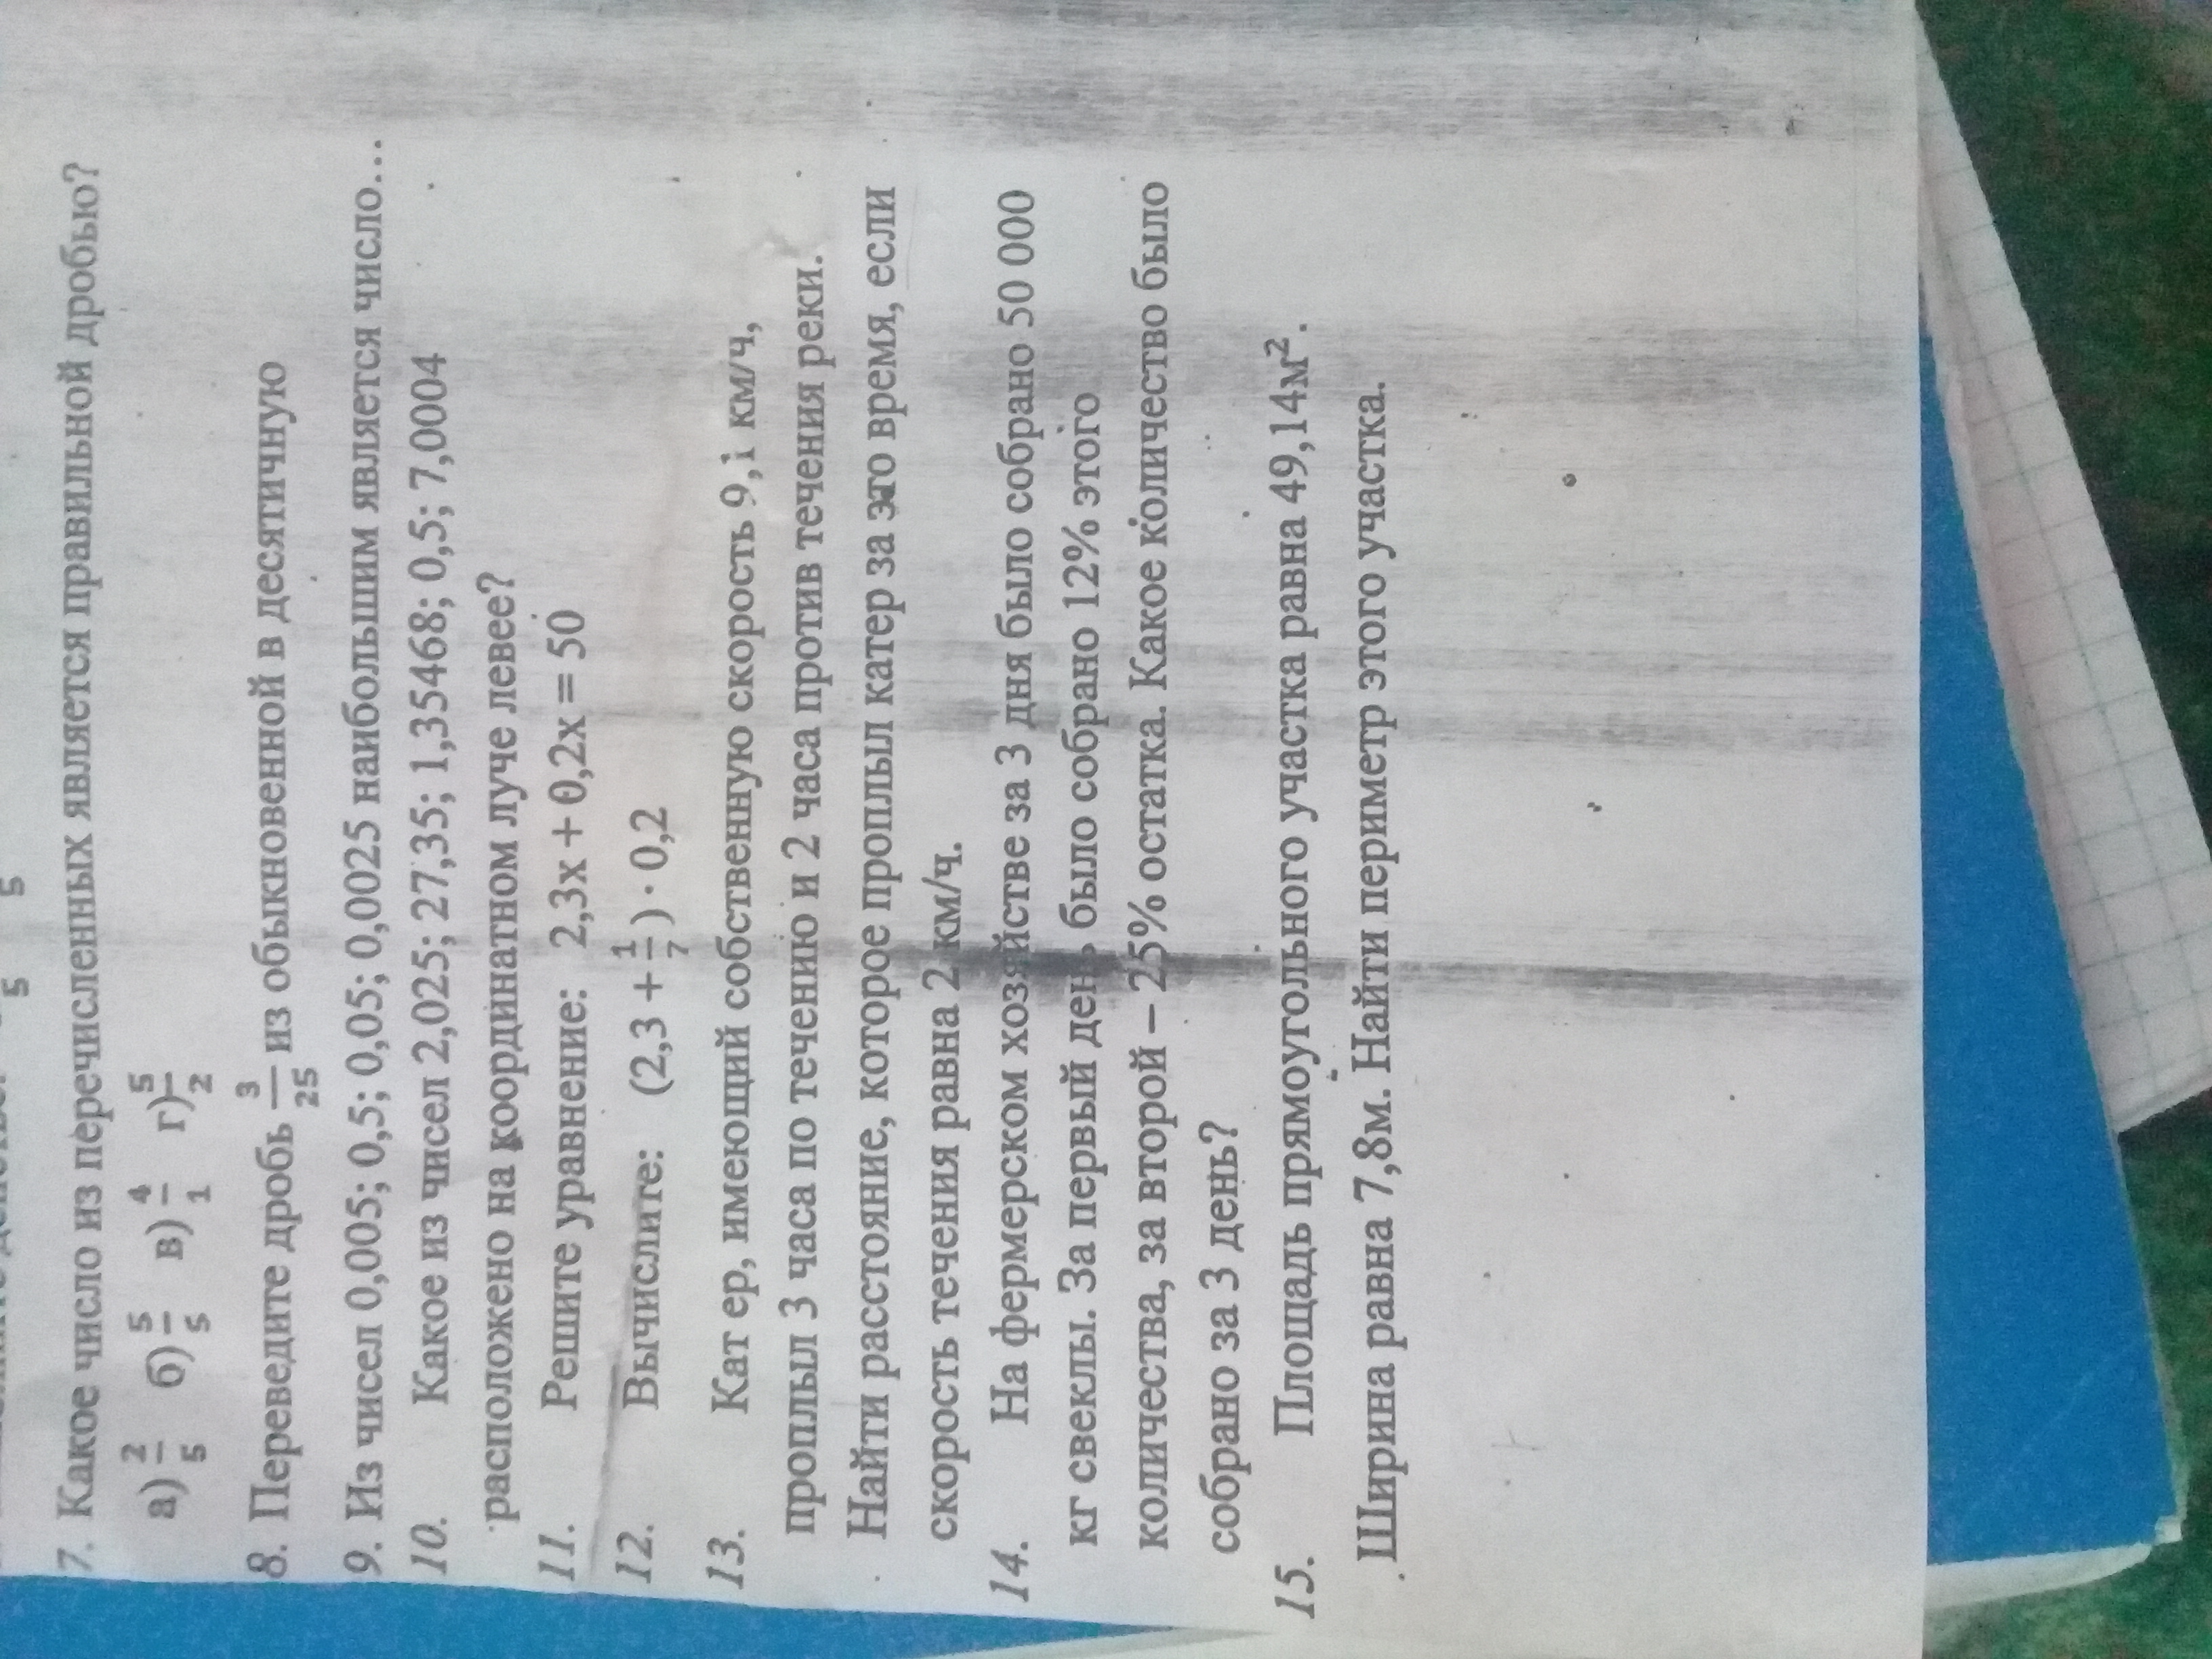 5 5
7. Какое число из перечисленных является правильной дробью?
а) 2/5 б) 5/5 в) 4/1 г) 5/2
8. Переведите дробь 3/25 из обыкновенной в десятичную
9. Из чисел 0,005; 0,5; 0,05; 0,0025 наибольшим является число...
10. Какое из чисел 2,025; 27,35; 1,35468; 0,5; 7,0004
расположено на координатном луче левее?
11. Решите уравнение: 2,3х + 0,2х = 50
12. Вычислите: (2,3 + 1/7) · 0,2
13. Кат ер, имеющий собственную скорость 9,1 км/ч,
проплыл 3 часа по течению и 2 часа против течения реки.
Найти расстояние, которое проплыл катер за это время, если
скорость течения равна 2 км/ч.
14. На фермерском хозяйстве за 3 дня было собрано 50 000
кг свеклы. За первый день было собрано 12% этого
количества, за второй – 25% остатка. Какое количество было
собрано за 3 день?
15. Площадь прямоугольного участка равна 49,14м².
Ширина равна 7,8м. Найти периметр этого участка.